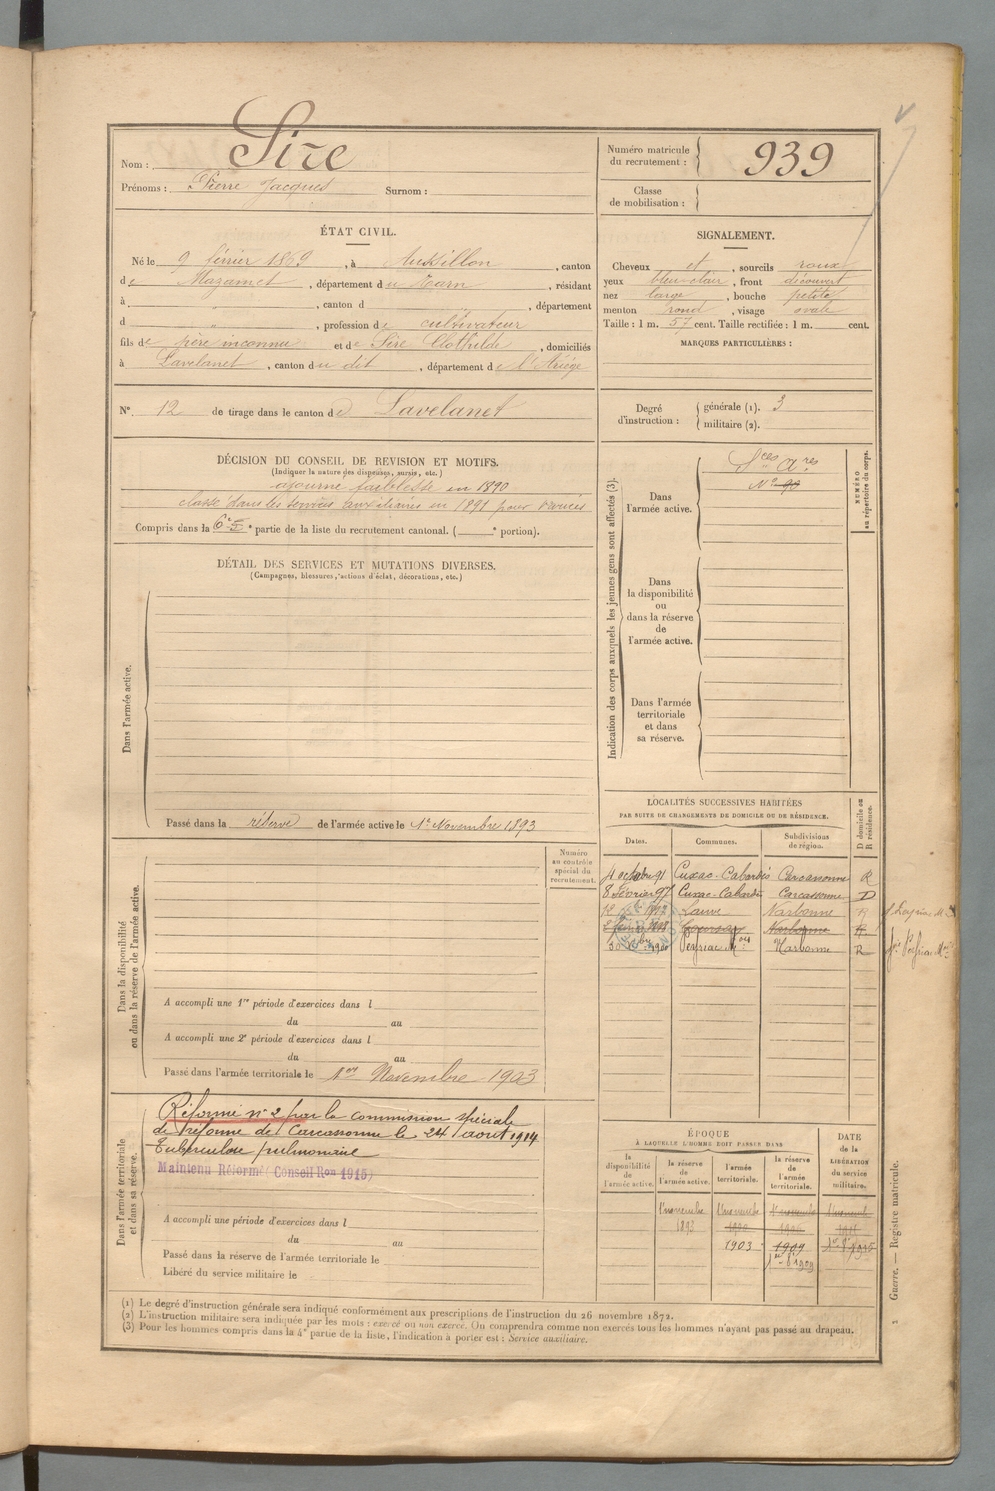 Nom : Sire
Prénoms : Pierre Jacques Surnom :
Numéro matricule du recrutement : 939
Classe de mobilisation :
ÉTAT CIVIL.
Né le 9 février 1869, à Aussillon, canton
de Mazamet, département du Tarn, résidant
à , canton d , département
d , profession de cultivateur
fils de père inconnu et de Sire Clothilde, domiciliés
à Lavelanet, canton du dit, département de l'Ariége
SIGNALEMENT.
Cheveux et, sourcils roux
yeux bleu-clair, front découvert
nez large, bouche petite
menton rond, visage ovale
Taille : 1 m. 57 cent. Taille rectifiée : 1 m. cent.
MARQUES PARTICULIÈRES :
N° 12 de tirage dans le canton de Lavelanet
Degré d'instruction : générale (1). 3
militaire (2).
DÉCISION DU CONSEIL DE REVISION ET MOTIFS.
(Indiquer la nature des dispenses, sursis, etc.)
ajourné faiblesse en 1890
classé dans les services auxiliaires en 1891 pour varices
Compris dans la 6e 5e partie de la liste du recrutement cantonal. ( e portion).
DÉTAIL DES SERVICES ET MUTATIONS DIVERSES.
(Campagnes, blessures, actions d'éclat, décorations, etc.)
Dans l'armée active.
Passé dans la réserve de l'armée active le 1er Novembre 1893
Indication des corps auxquels les jeunes gens sont affectés (3).
NUMÉRO au répertoire du corps.
Dans l'armée active.
Sces Ares
N° 90
Dans la disponibilité ou dans la réserve de l'armée active.
Dans l'armée territoriale et dans sa réserve.
LOCALITÉS SUCCESSIVES HABITÉES
PAR SUITE DE CHANGEMENTS DE DOMICILE OU DE RÉSIDENCE.
Dates. Communes. Subdivisions de région. D domicile ou R résidence.
4 octobre 91 Cuxac-Cabardès Carcassonne R
8 Février 97 Cuxac-Cabardès Carcassonne D
Narbonne
Narbonne
Peyriac Mois Narbonne R
Dans la disponibilité ou dans la réserve de l'armée active.
Numéro au contrôle spécial du recrutement.
A accompli une 1re période d'exercices dans l
du au
A accompli une 2e période d'exercices dans l
du au
Passé dans l'armée territoriale le 1er Novembre 1903
Dans l'armée territoriale et dans sa réserve.
Réformé n° 2 par la commission spéciale
de réforme de Carcassonne le 24 août 1914
Tuberculose pulmonaire
Maintenu Réformé (Conseil Ron 1915)
A accompli une période d'exercices dans l
du au
Passé dans la réserve de l'armée territoriale le
Libéré du service militaire le
ÉPOQUE
À LAQUELLE L'HOMME DOIT PASSER DANS
DATE de la LIBÉRATION du service militaire.
la disponibilité de l'armée active. la réserve de l'armée active. l'armée territoriale. la réserve de l'armée territoriale.
1 novembre 1 novembre 1 novembre 1 novembre
1893
1903 1909
(1) Le degré d'instruction générale sera indiqué conformément aux prescriptions de l'instruction du 26 novembre 1872.
(2) L'instruction militaire sera indiquée par les mots : exercé ou non exercé. On comprendra comme non exercés tous les hommes n'ayant pas passé au drapeau.
(3) Pour les hommes compris dans la 4e partie de la liste, l'indication à porter est : Service auxiliaire.
Guerre. — Registre matricule.